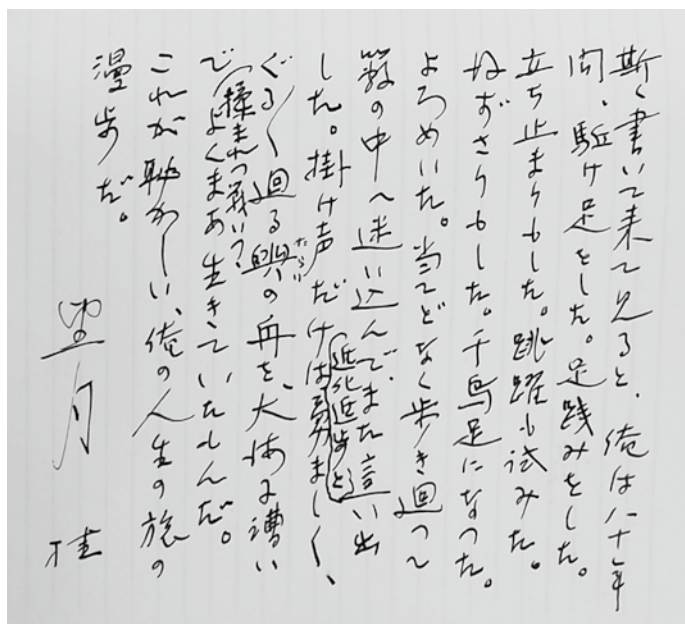 斯く書いて来て見ると、俺は八十年
間、駈け足をした。足踐みをした。
立ち止まりもした。跳躍も試みた。
ずさりもした。千鳥足になつた。
よろめいた。当てどなく歩き廻つて
藪の中へ迷い込んでまた這い出
した。掛け声だけは勇ましく、
ぐる〱廻る盥の舟を、大海に漕い
たらい
揉まれつ戦い?
でよくまあ生きていたもんだ。
これが恥かしい、俺の人生の旅の
漫歩だ。
望月 桂